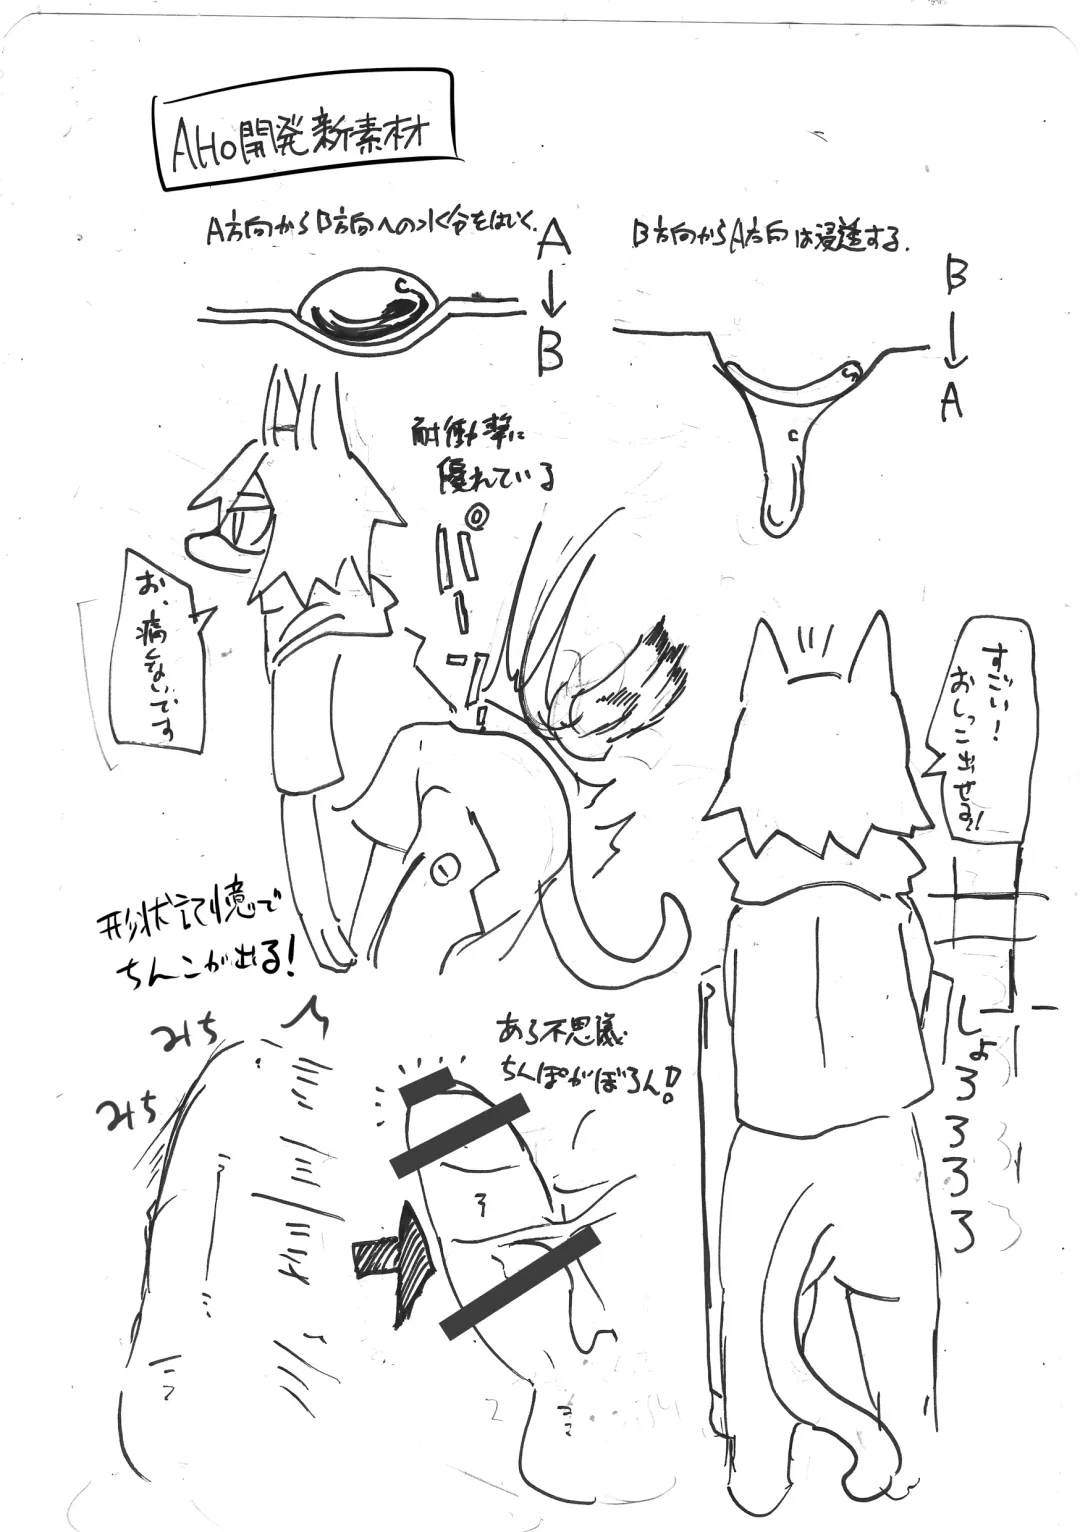 AHO開発新素材
A方向からB方向への水分をはじく.
A
B
B方向からA方向は浸透する.
B
A
耐衝撃に
優れている
お、痛くないです
すごい!
おしっこ出せる!!
形状記憶で
ちんこが出る!
みち
みち
あら不思議
ちんぽがぼろん!
しょろろろろ